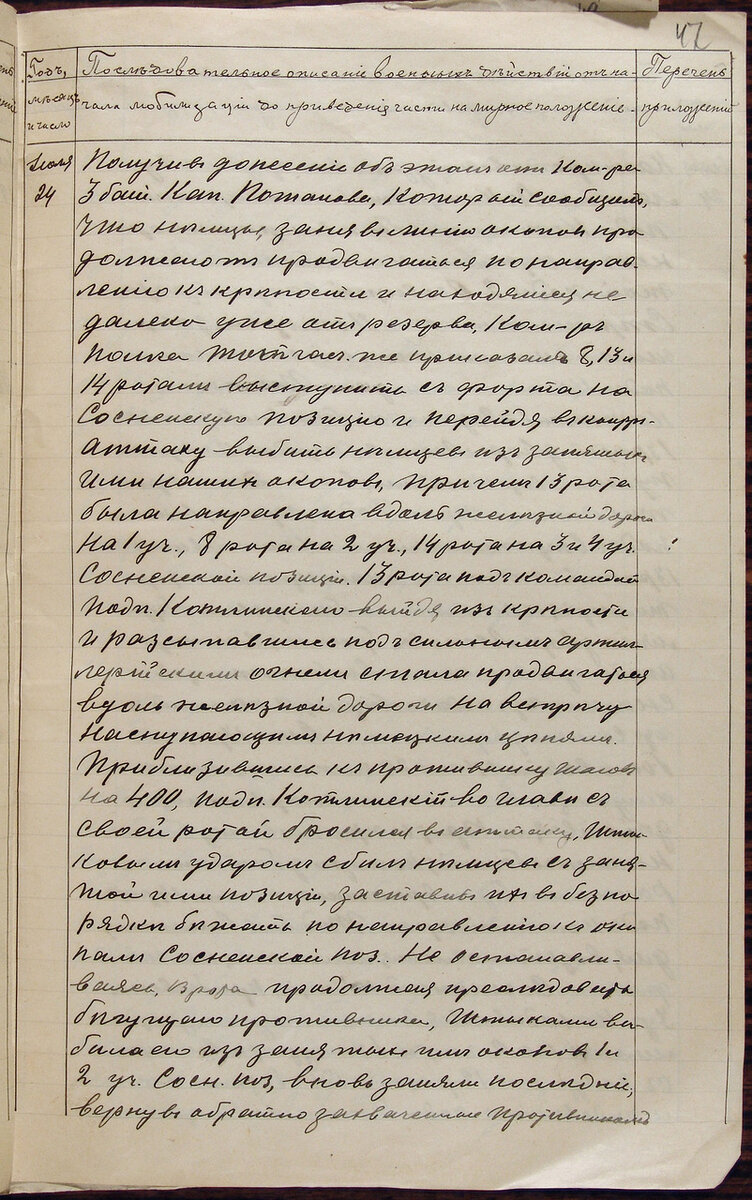 47
Годъ,
мѣсяцъ
и число
Послѣдовательное описаніе военныхъ дѣйствій отъ на-
чала мобилизаціи до приведенія части на мирное положеніе.
Перечень
приложеній
Іюля
24
Получивъ донесеніе объ этомъ отъ Ком-ра
3 бат. Кап. Потапова, который сообщилъ,
что нѣмцы, занявъ линію окоповъ про
должаютъ продвигаться по направ-
ленію къ крѣпости и находятся не
далеко уже отъ резерва, Ком-ръ
полка тотчасъ же приказалъ 8, 13 и
14 ротамъ выступить съ форта на
Сосненскую позицію и перейдя въ контръ-
аттаку выбить нѣмцевъ изъ занятыхъ
ими нашихъ окоповъ, причемъ 13 рота
была направлена вдоль желѣзной дороги
на 1 уч., 8 рота на 2 уч., 14 рота на 3 и 4 уч.
Сосненской позиціи. 13 рота подъ командой
подп. Котлинскаго выйдя изъ крѣпости
и разсыпавшись подъ сильнымъ артил-
лерійскимъ огнемъ стала продвигаться
вдоль желѣзной дороги на встрѣчу
наступающимъ нѣмецкимъ цѣпямъ.
Приблизившись къ противнику шаговъ
на 400, подп. Котлинскій во главѣ съ
своей ротой бросился въ аттаку, Шты-
ковымъ ударомъ сбилъ нѣмцевъ съ заня-
той ими позиціи, заставивъ ихъ въ безпо
рядкѣ бѣжать по направленію къ око
памъ Сосненской поз. Не останавли-
ваясь, 13 рота продолжая преслѣдовать
бѣгущаго противника, Штыками вы-
била его изъ занятыхъ имъ окоповъ 1 и
2 уч. Сосн. поз, вновь заняли послѣдніе,
вернувъ обратно захваченное противникомъ